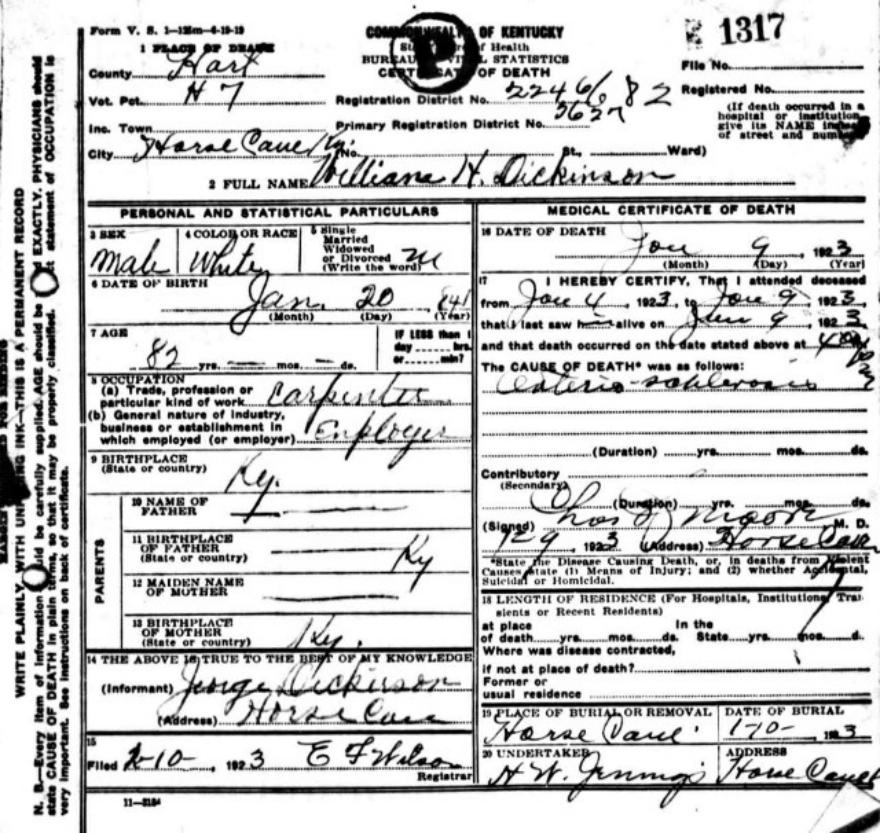 Form V. S. 1-125m-4-19-19
COMMONWEALTH OF KENTUCKY
State Board of Health
BUREAU OF VITAL STATISTICS
CERTIFICATE OF DEATH
P
1317
File No.
Registered No.
(If death occurred in a
hospital or institution
give its NAME instead
of street and number
1 PLACE OF DEATH
County Hart
Vot. Pct. H 7
Registration District No. 82
Inc. Town
Primary Registration District No. 5627
City Horse Cave Ky. (No. St., Ward)
2 FULL NAME William H. Dickinson
PERSONAL AND STATISTICAL PARTICULARS
3 SEX
Male
4 COLOR OR RACE
White
5 Single
Married
Widowed
or Divorced
(Write the word) M
6 DATE OF BIRTH
Jan. 20 1841
(Month) (Day) (Year)
7 AGE
82 yrs. mos. ds.
IF LESS than 1
day hrs.
or min?
8 OCCUPATION
(a) Trade, profession or
particular kind of work Carpenter
(b) General nature of industry,
business or establishment in
which employed (or employer) Employer
9 BIRTHPLACE
(State or country) Ky.
PARENTS
10 NAME OF
FATHER
11 BIRTHPLACE
OF FATHER
(State or country) Ky
12 MAIDEN NAME
OF MOTHER
13 BIRTHPLACE
OF MOTHER
(State or country) Ky.
14 THE ABOVE IS TRUE TO THE BEST OF MY KNOWLEDGE
(Informant) George Dickinson
(Address) Horse Cave
15
Filed 2-10-, 1923 E F Wilson
Registrar
11-3184
MEDICAL CERTIFICATE OF DEATH
16 DATE OF DEATH
Jan 9, 1923
(Month) (Day) (Year)
17 I HEREBY CERTIFY, That I attended deceased
from Jan 4, 1923, to Jan 9, 1923,
that I last saw h alive on Jan 9, 1923,
and that death occurred on the date stated above at
The CAUSE OF DEATH* was as follows:
(Duration) yrs. mos. ds.
Contributory
(Secondary)
(Duration) yrs. mos. ds.
(Signed) Chas J Moore M. D.
1-29, 1923 (Address) Horse Cave
*State the Disease Causing Death, or, in deaths from Violent
Causes state (1) Means of Injury; and (2) whether Accidental,
Suicidal or Homicidal.
18 LENGTH OF RESIDENCE (For Hospitals, Institutions, Tran
sients or Recent Residents)
at place In the
of death yrs. mos. ds. State yrs. mos. d.
Where was disease contracted,
if not at place of death?
Former or
usual residence
19 PLACE OF BURIAL OR REMOVAL
Horse Cave
DATE OF BURIAL
1-10-, 1923
20 UNDERTAKER
H W. Jennings
ADDRESS
Horse Cave
WRITE PLAINLY, WITH UNFADING INK—THIS IS A PERMANENT RECORD
N. B.—Every item of information should be carefully supplied. AGE should be EXACTLY. PHYSICIANS should
state CAUSE OF DEATH in plain terms, so that it may be properly classified. statement of OCCUPATION is
very important. See instructions on back of certificate.